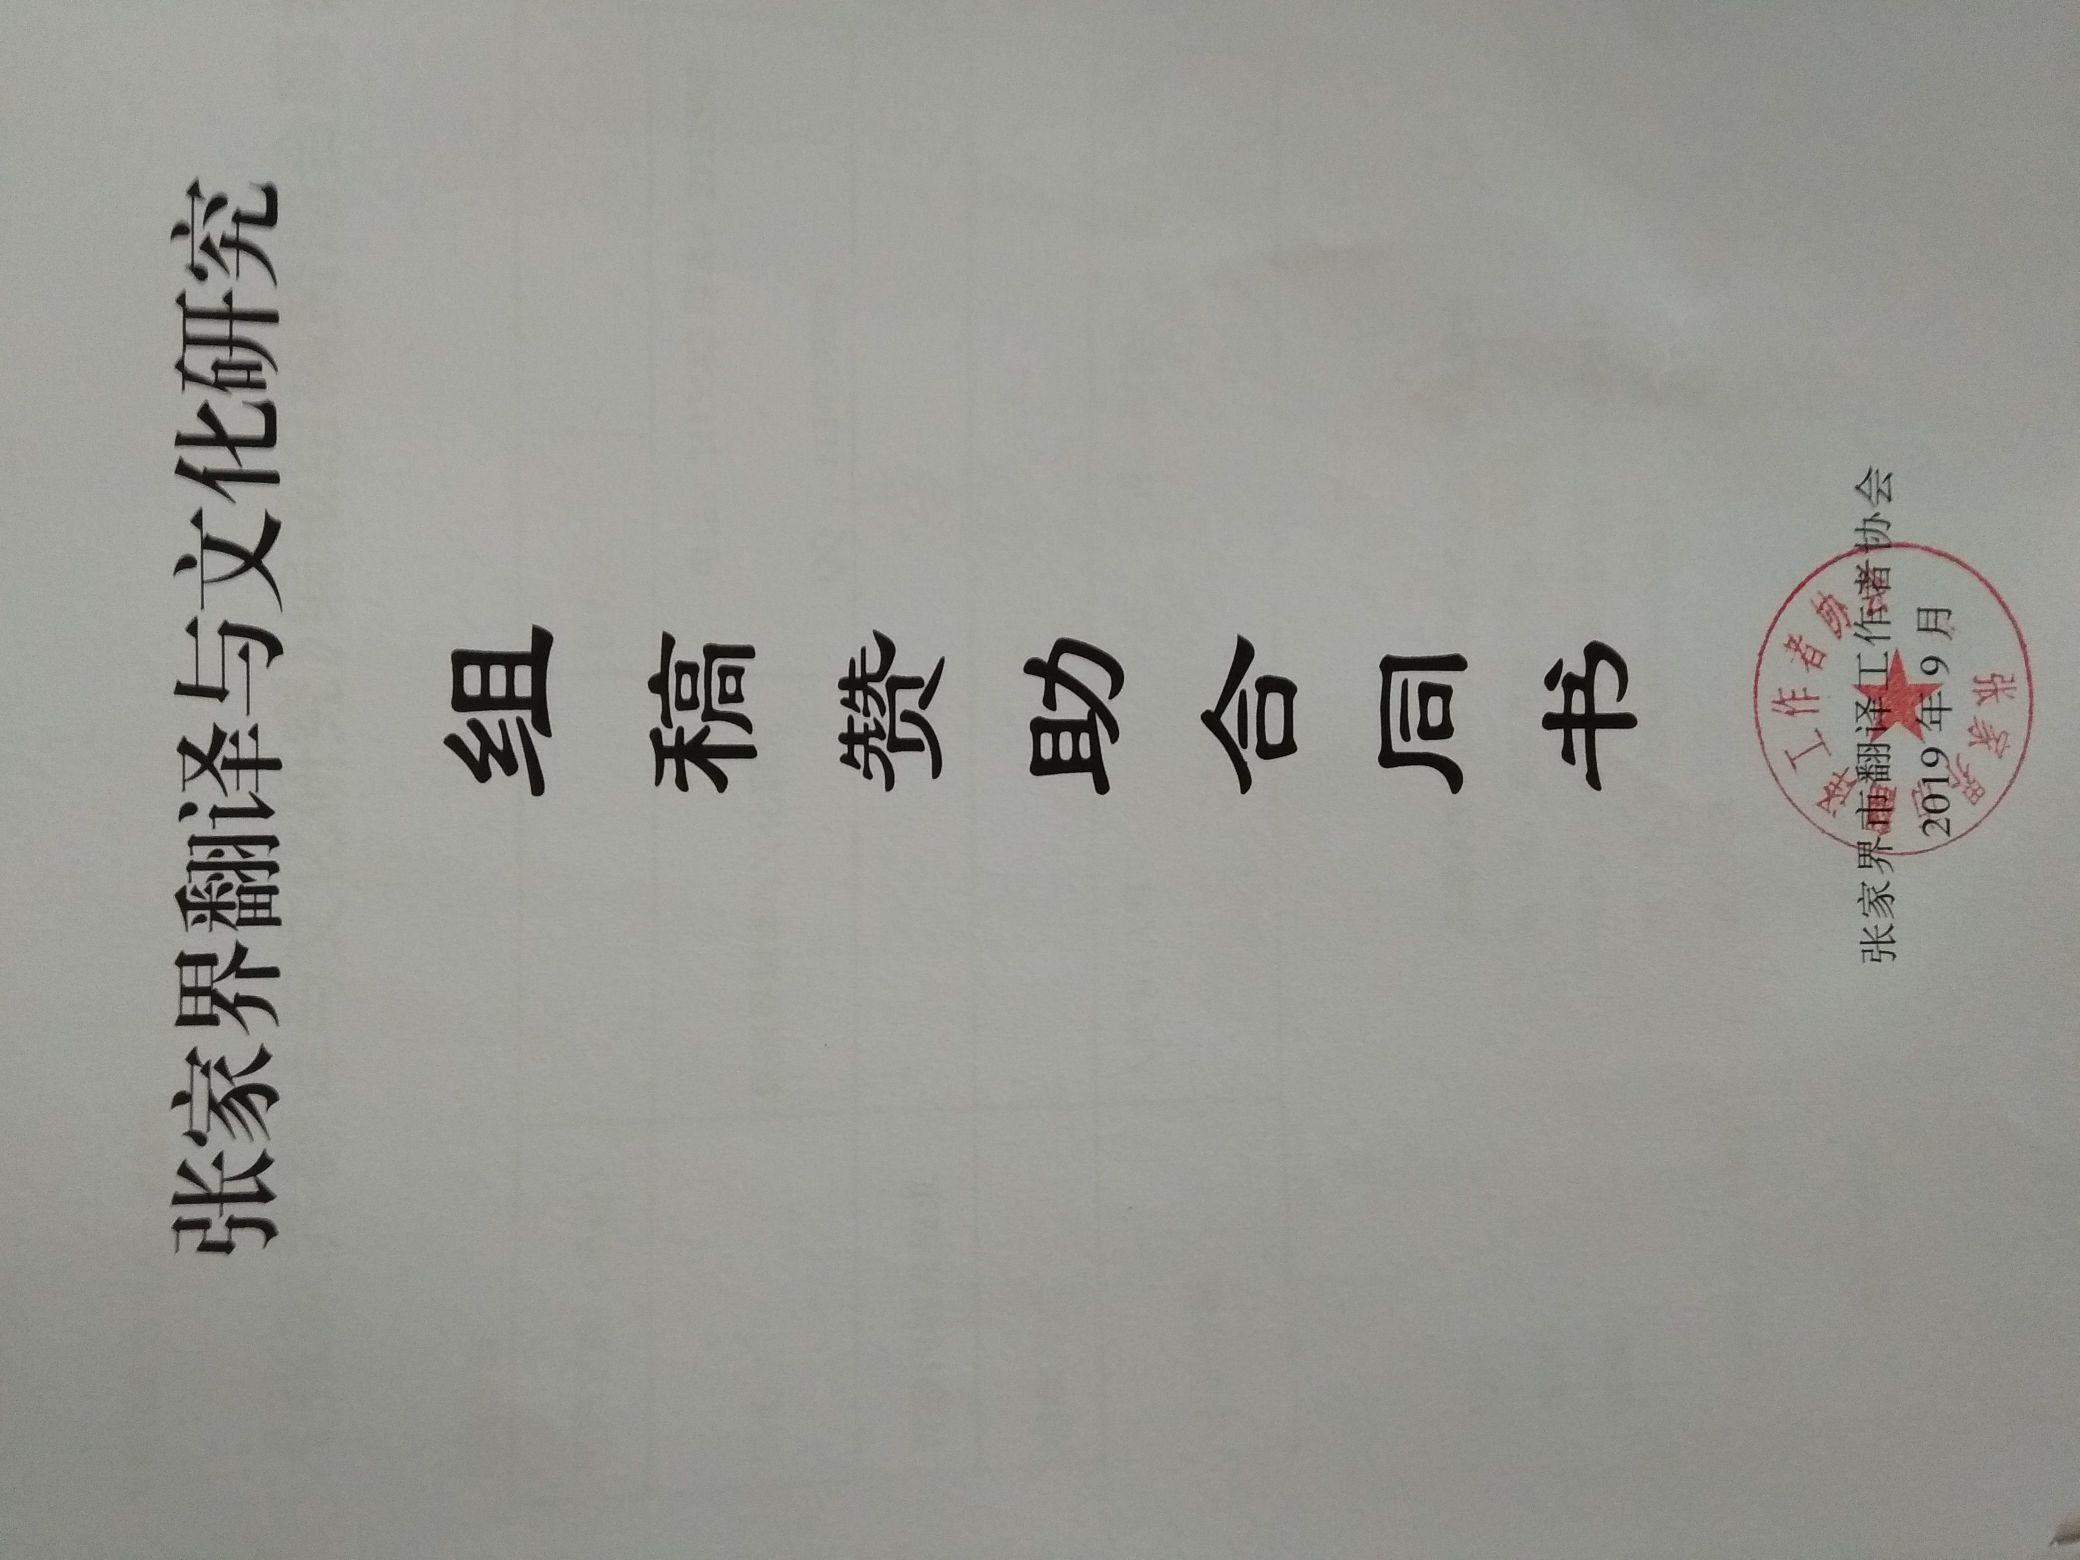 张家界翻译与文化研究
组
稿
赞
助
合
同
书
张家界市翻译工作者协会
2019年9月
张家界市翻译工作者协